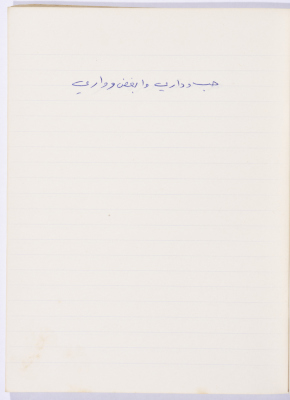 حب وداري وابغض وواري